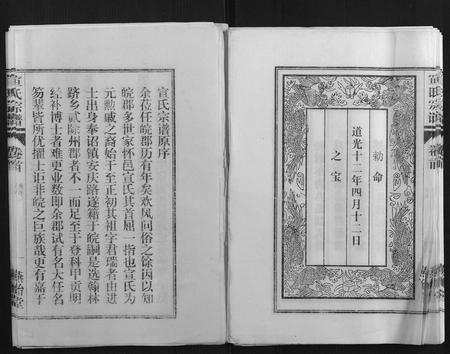 宣氏宗譜
卷首
敕命
道光十二年四月十二日
之宝
宣氏宗谱原序
余莅任皖郡历有年矣欢风问俗之馀因以知
皖郡多世家怀邑宣氏其首屈一指也宣氏为
元勲戚之裔始于至正初其祖字君瑞者由进
士出身奉诏镇安庆路遂籍于皖嗣是选翰林
跻乡贰除州郡者不一而足至于登科甲贡明
经补博士者难更业数即余郡试有名大任名
笏辈皆所优擢士讵非皖之巨族哉更有嘉于
宣氏宗譜
卷首